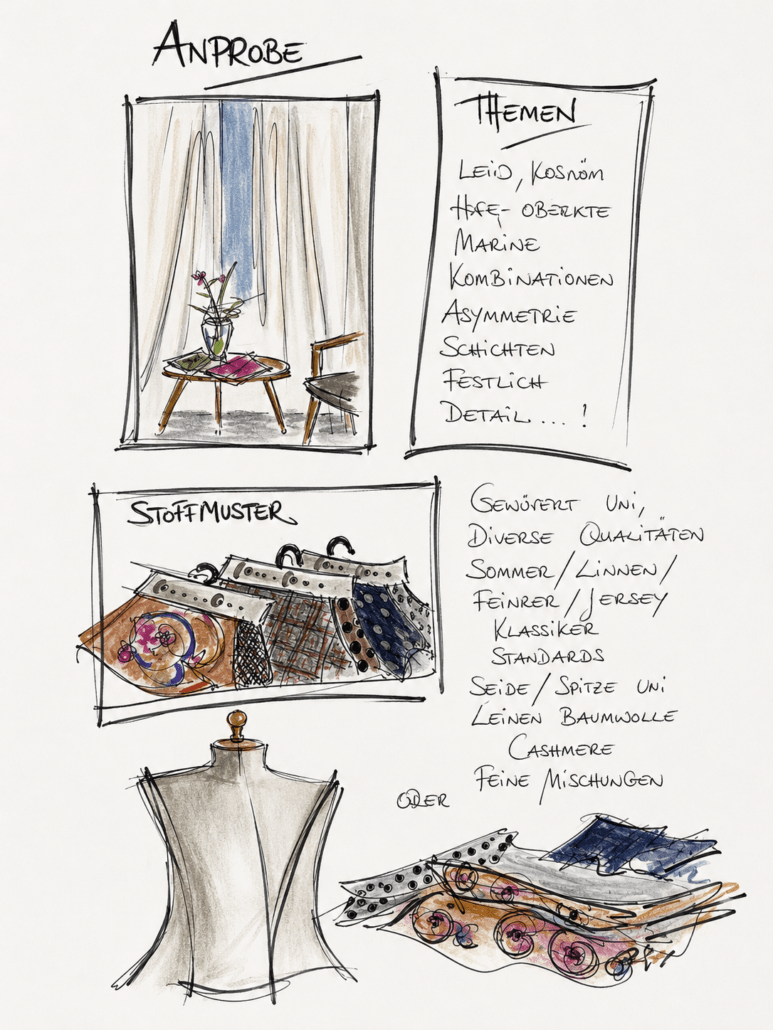 ANPROBE
THEMEN
LEIID, KOSNÖM
OBERKTE
MARINE
KOMBINATIONEN
ASYMMETRIE
SCHICHTEN
FESTLICH
DETAIL ... !
STOFFMUSTER
GEWÜFERT UNI,
DIVERSE QUALITÄTEN
SOMMER/LINNEN/
FEINRER/JERSEY
KLASSIKER
STANDARDS
SEIDE/SPITZE UNI
LEINEN BAUMWOLLE
CASHMERE
FEINE MISCHUNGEN
ODER